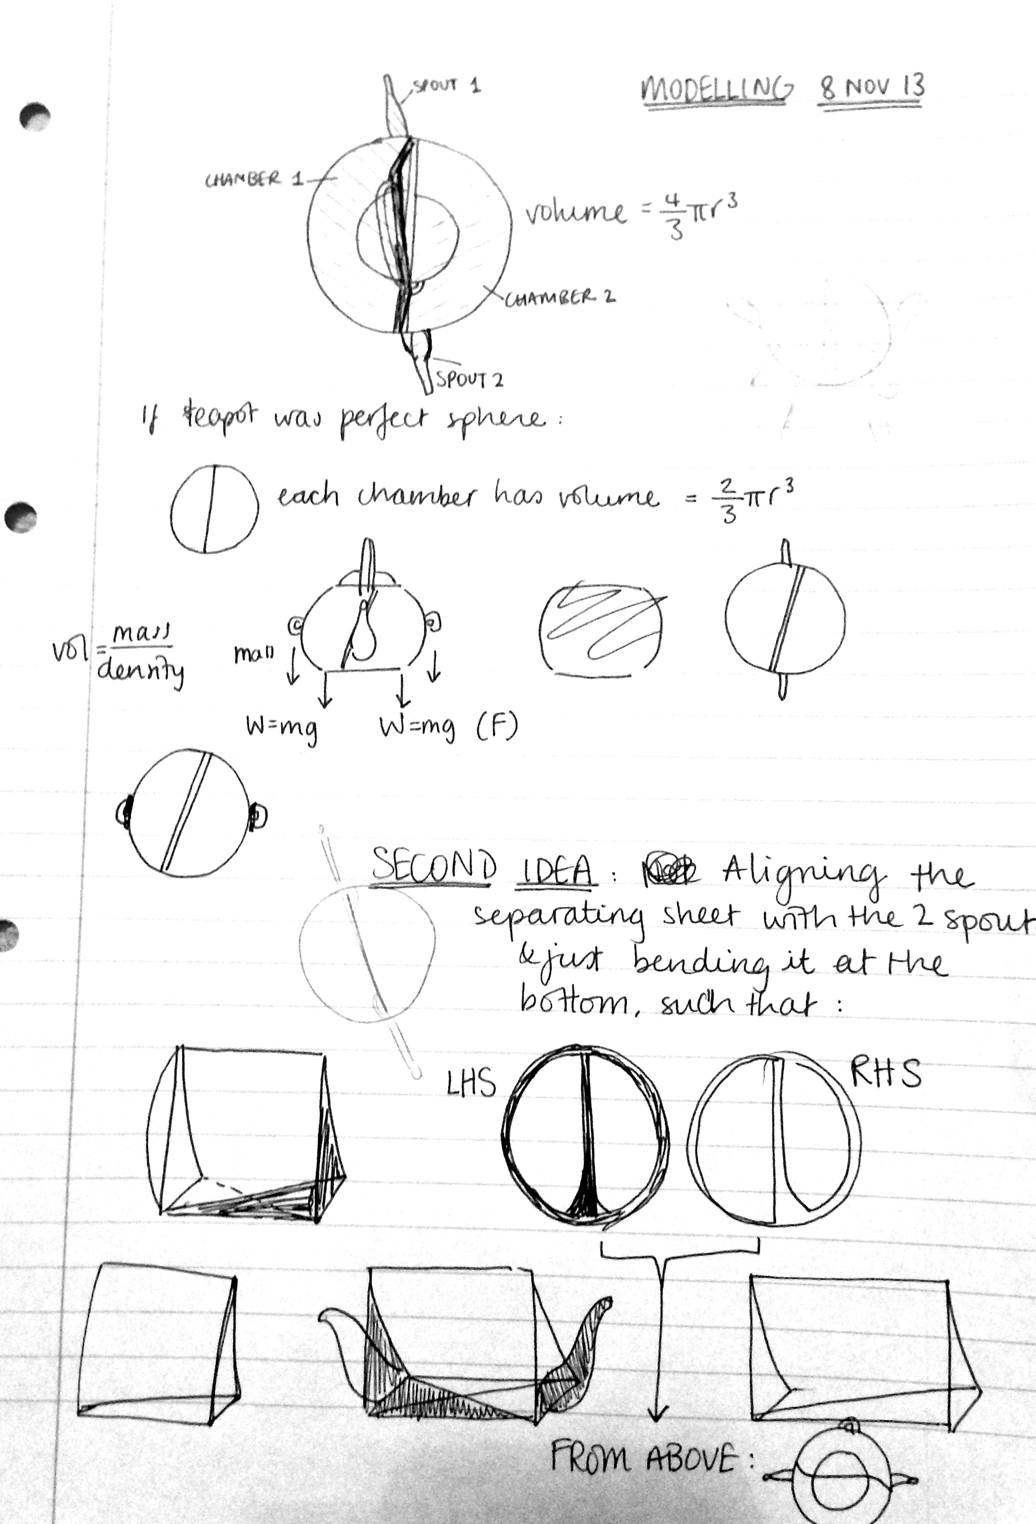 MODELLING 8 NOV 13
SPOUT 1
CHAMBER 1
volume = 4/3 πr³
CHAMBER 2
SPOUT 2
If teapot was perfect sphere:
each chamber has volume = 2/3 πr³
vol = mass/density
mass
W=mg W=mg (F)
SECOND IDEA: Aligning the
separating sheet with the 2 spout
& just bending it at the
bottom, such that:
LHS
RHS
FROM ABOVE: